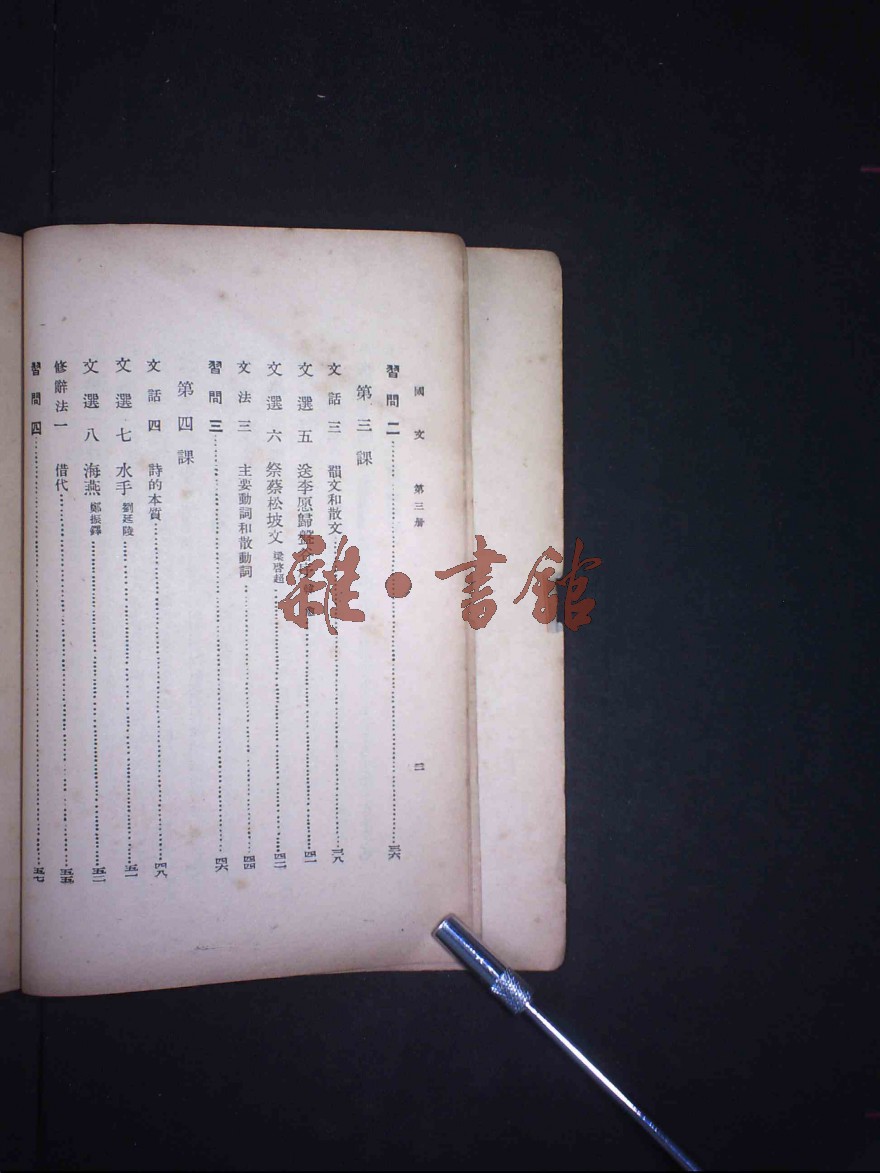 國文 第三册 二
習問二……三六
第三課
文話三 韻文和散文……三八
文選五 送李愿歸盤谷序……四一
文選六 祭蔡松坡文 梁啓超……四二
文法三 主要動詞和散動詞……四四
習問三……四六
第四課
文話四 詩的本質……四八
文選七 水手 劉延陵……五一
文選八 海燕 鄭振鐸……五二
修辭法一 借代……五五
習問四……五七
雜·書館